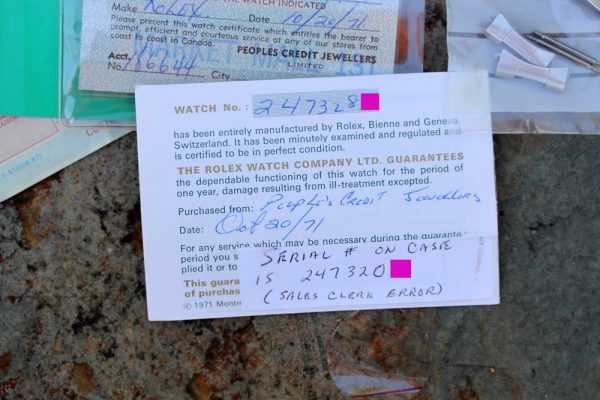 THE WATCH INDICATED
Make ROLEX Date 10/20/71
Please present this watch certificate which entitles the bearer to
prompt, efficient and courteous service at any of our stores from
coast to coast in Canada.
PEOPLES CREDIT JEWELLERS
LIMITED
Acct.
No. City
WATCH No.: 247328
has been entirely manufactured by Rolex, Bienne and Geneva,
Switzerland. It has been minutely examined and regulated and
is certified to be in perfect condition.
THE ROLEX WATCH COMPANY LTD. GUARANTEES
the dependable functioning of this watch for the period of
one year, damage resulting from ill-treatment excepted.
Purchased from: People's Credit Jewellers
Date: Oct 20/71
For any service which may be necessary during the guarante
period you s
plied it or to
This guara
of purchas
© 1971 Montr
SERIAL # ON CASE
IS 247320
(SALES CLERK ERROR)